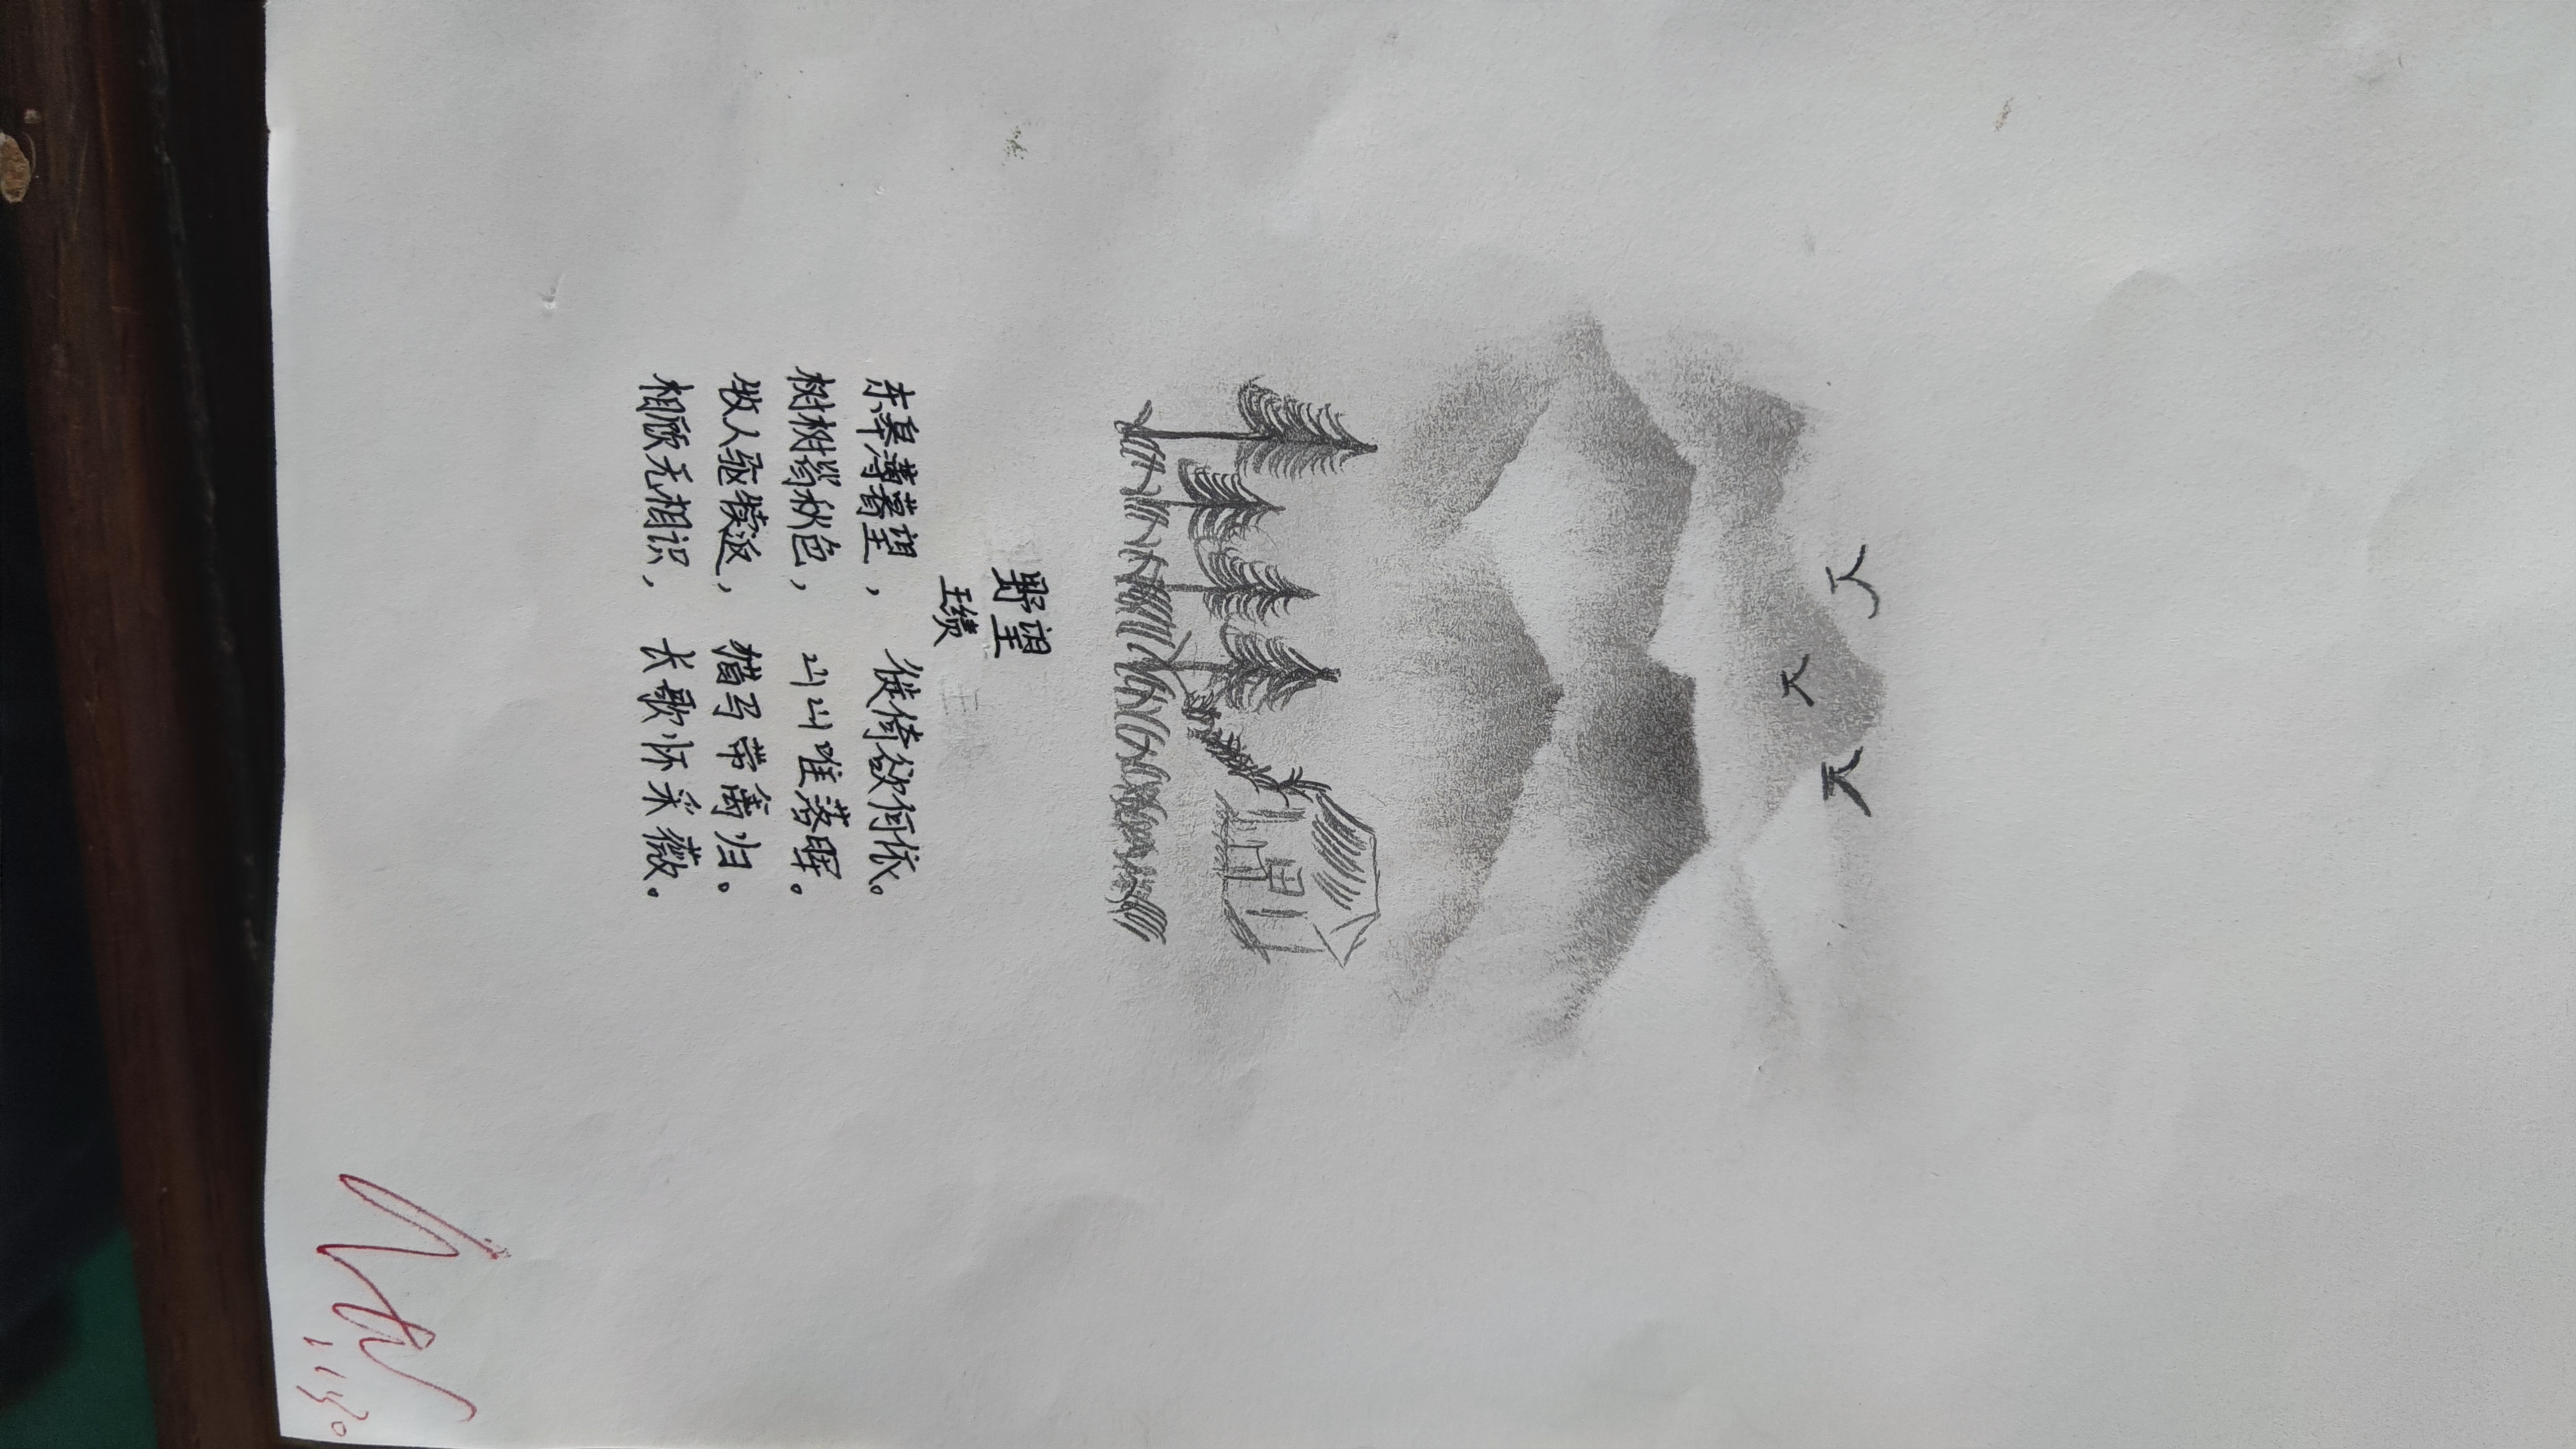 野望
王绩
东皋薄暮望，徙倚欲何依。
树树皆秋色，山山唯落晖。
牧人驱犊返，猎马带禽归。
相顾无相识，长歌怀采薇。
11.30